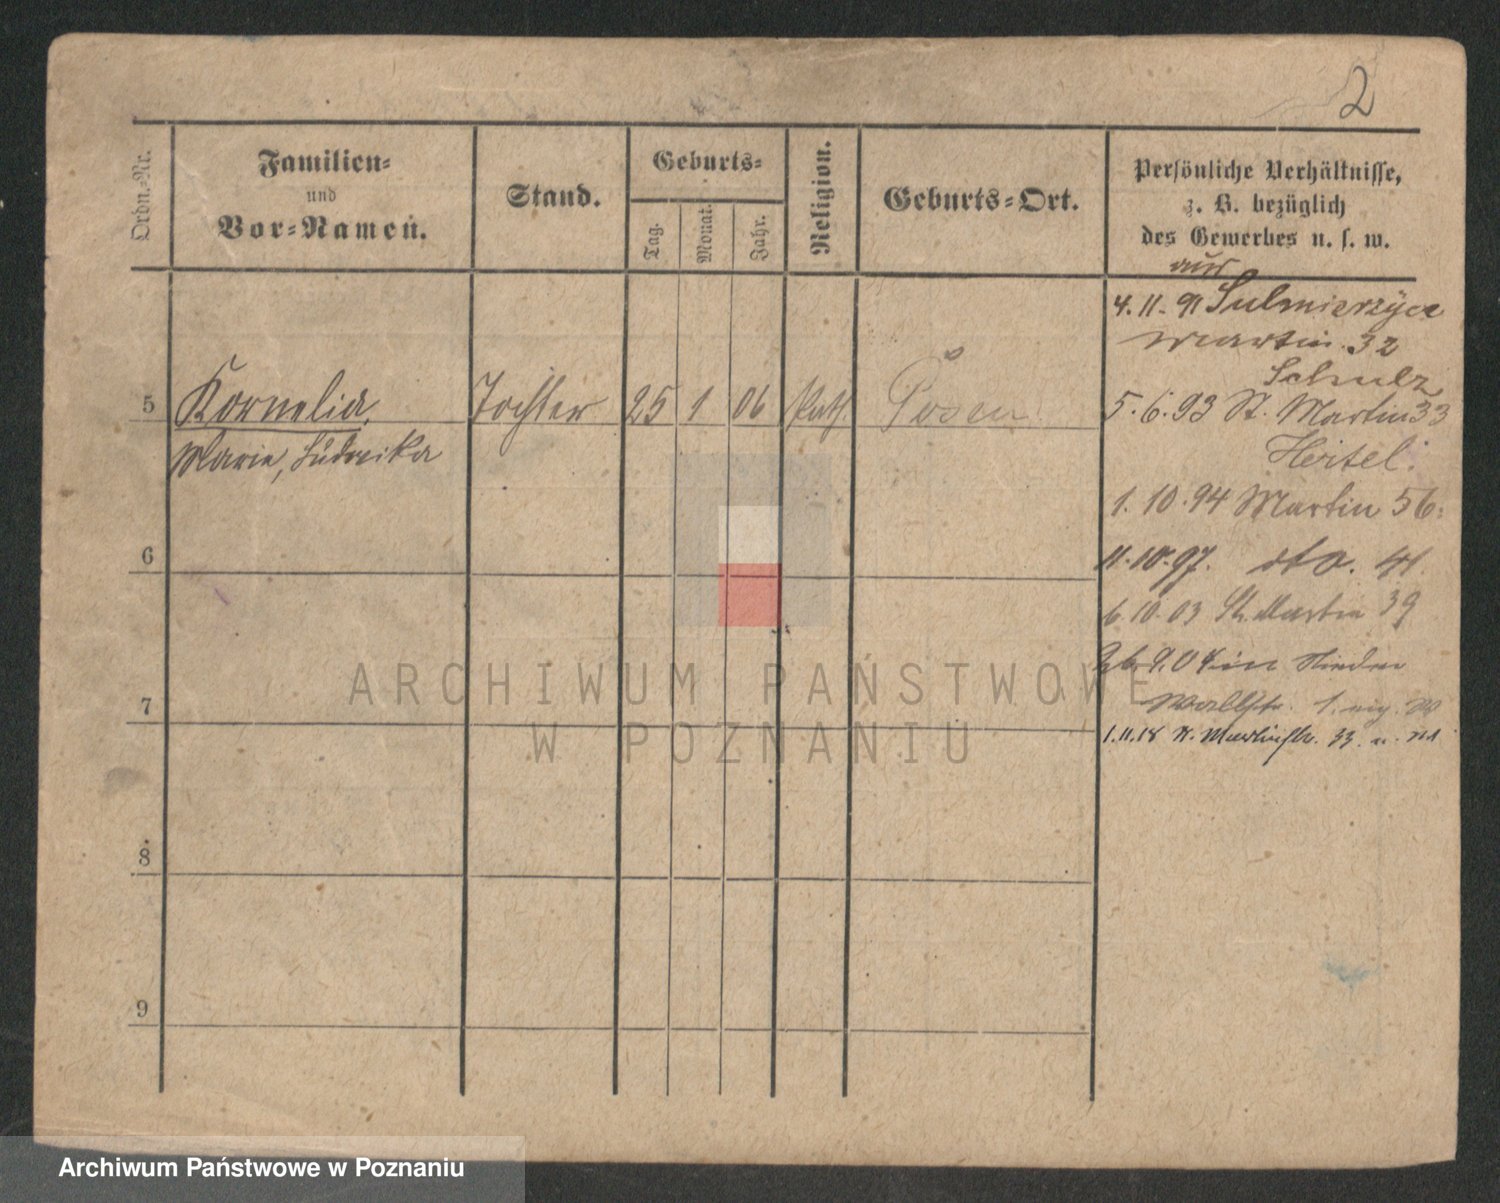 2
Ordn.-Nr.
Familien-
und
Vor-Namen.
Stand.
Geburts-
Tag.
Monat.
Jahr.
Religion.
Geburts-Ort.
Persönliche Verhältnisse,
z. B. bezüglich
des Gewerbes u. s. w.
aus
4. 11. 91 Sulmierzyce
Martin 32
Schulz
5 Kornelia, Tochter 25 1 06 kath. Posen
Marie, Ludwika
5. 6. 93 St. Martin 33
Hertel.
1. 10. 94 Martin 56.
6
11. 10. 97. dto. 41
6. 10. 03 St. Martin 39
7
Wallstr. 1.
1. 11. 18 St. Martinstr. 33.
8
9
ARCHIWUM PAŃSTWOWE
W POZNANIU
Archiwum Państwowe w Poznaniu